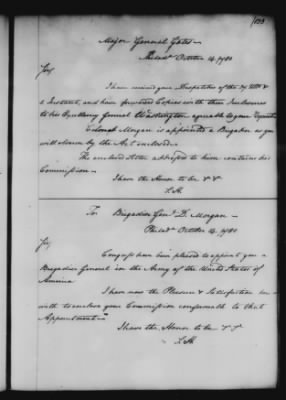 Major General Gates
Philada October 14. 1780
Sir,
I have received your Dispatches of the
& Instant, and have forwarded Copies with their Inclosures
to his Excellency General Washington agreeable to your
Colonel Morgan is appointed a Brigadier as you
will observe by the Act enclosed.
The enclosed Letter addressed to him contains his
Commission.
I have the Honor to be &c &c
S. H.
To Brigadier Genl D. Morgan
Philada October 14. 1780
Sir,
Congress have been pleased to appoint you a
Brigadier General in the Army of the United States of
America
I have now the Pleasure & Satisfaction
with to enclose your Commission conformable to that
Appointment
I have the Honor to be &c &c
S. H.